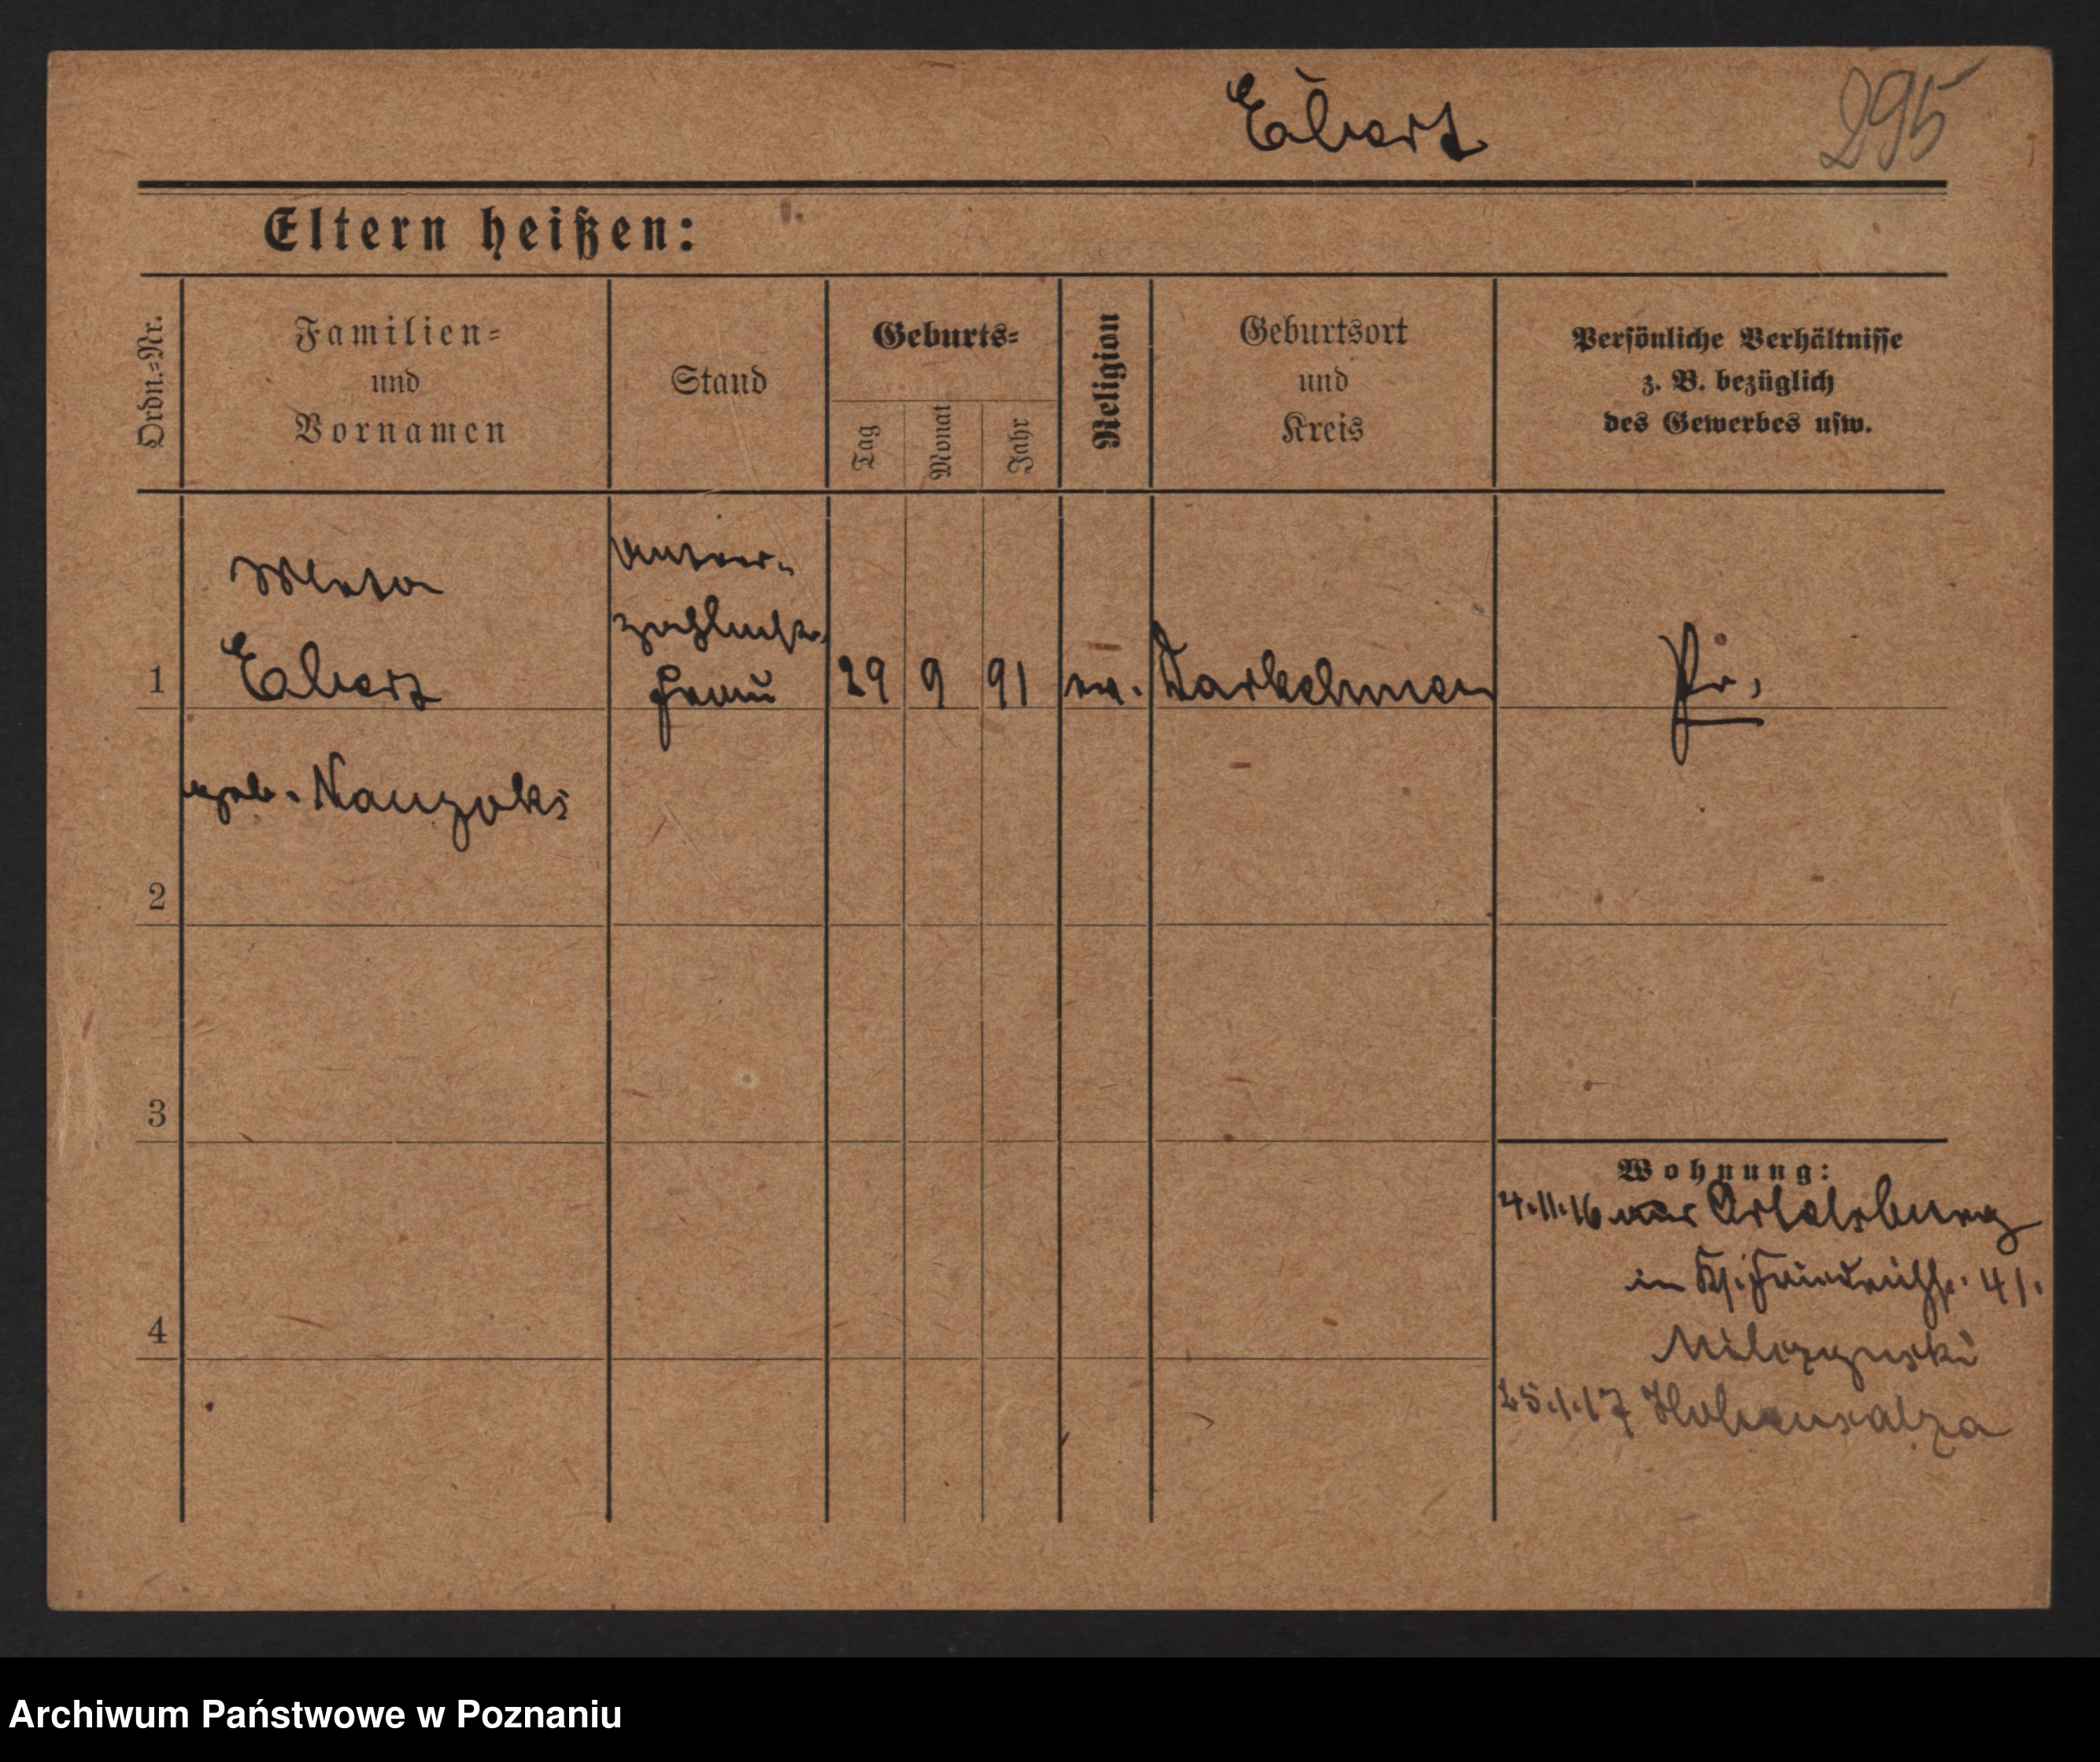 Ebert 295
Eltern heißen:
Ordn.-Nr.
Familien-
und
Vornamen
Stand
Geburts-
Tag
Monat
Jahr
Religion
Geburtsort
und
Kreis
Persönliche Verhältnisse
z. B. bezüglich
des Gewerbes usw.
Meta
Unter-
zahlmstr.
1 Ebert Frau 29 9 91 ev. Darkehmen Pr.
geb. Nauzoks
2
3
Wohnung:
4.11.16 aus Ortelsburg
in Friedrichstr. 41.
4
25.1.17 Hohensalza
Archiwum Państwowe w Poznaniu